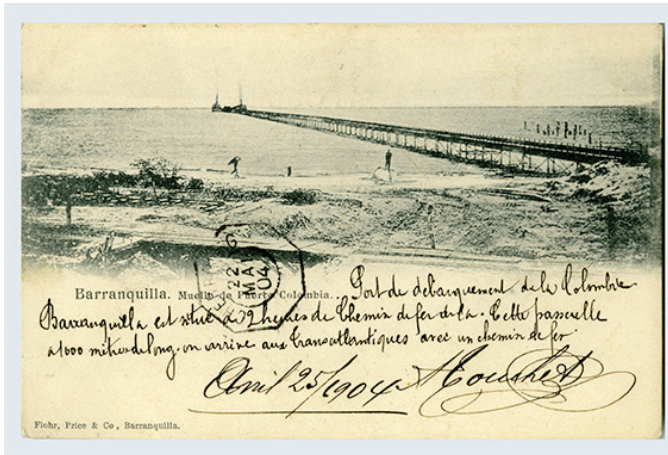 22
MAI
04
Barranquilla. Muelle de Puerto Colombia. Port de débarquement de la Colombie
Barranquilla est situé à 2 heures de chemin de fer de là. Cette passerelle
a 1000 mètres de long. on arrive aux transatlantiques avec un chemin de fer
Avril 25/1904
Flohr, Price & Co, Barranquilla.